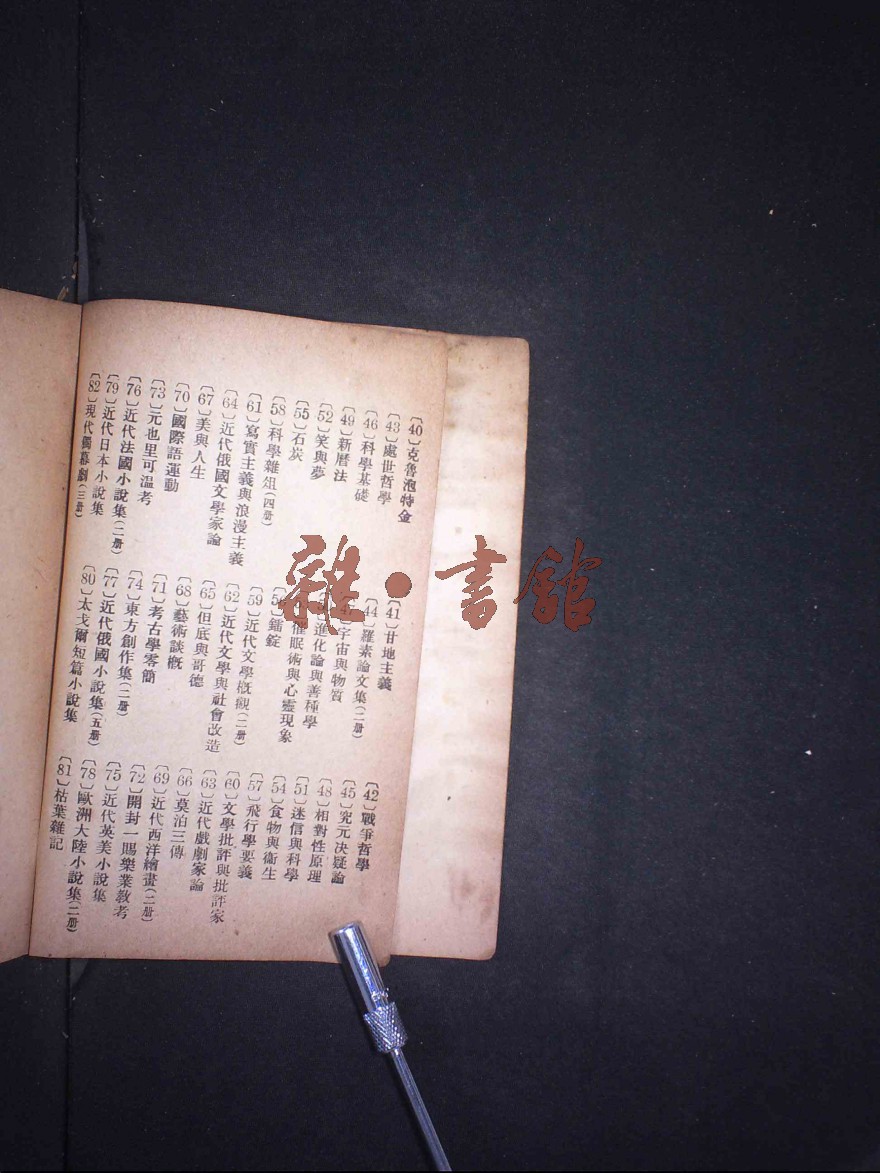 〔40〕克魯泡特金 〔41〕甘地主義 〔42〕戰爭哲學
〔43〕處世哲學 〔44〕羅素論文集(二册) 〔45〕究元決疑論
〔46〕科學基礎 〔47〕宇宙與物質 〔48〕相對性原理
〔49〕新曆法 進化論與善種學 〔51〕迷信與科學
〔52〕笑與夢 催眠術與心靈現象 〔54〕食物與衞生
〔55〕石炭 鐳錠 〔57〕飛行學要義
〔58〕科學雜俎(四册) 〔59〕近代文學概觀(二册) 〔60〕文學批評與批評家
〔61〕寫實主義與浪漫主義 〔62〕近代文學與社會改造 〔63〕近代戲劇家論
〔64〕近代俄國文學家論 〔65〕但底與哥德 〔66〕莫泊三傳
〔67〕美與人生 〔68〕藝術談概 〔69〕近代西洋繪畫(二册)
〔70〕國際語運動 〔71〕考古學零簡 〔72〕開封一賜樂業教考
〔73〕元也里可溫考 〔74〕東方創作集(二册) 〔75〕近代英美小說集
〔76〕近代法國小說集(二册) 〔77〕近代俄國小說集(五册) 〔78〕歐洲大陸小說集(二册)
〔79〕近代日本小說集 〔80〕太戈爾短篇小說集 〔81〕枯葉雜記
〔82〕現代獨幕劇(三册)
雜·書館